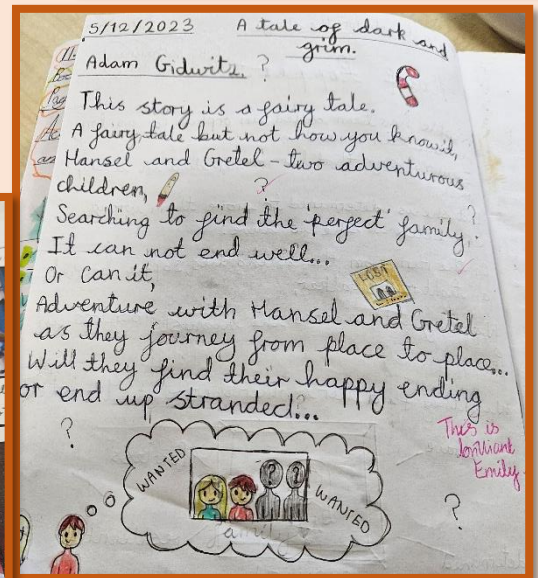 5/12/2023 A tale of dark and
grim.
Adam Gidwitz. ?
This story is a fairy tale.
A fairy tale but not how you know it,
Hansel and Gretel - two adventurous
children, ?
Searching to find the 'perfect' family. ?
It can not end well...
Or can it,
LOST
Adventure with Hansel and Gretel
as they journey from place to place...
Will they find their happy ending
or end up stranded...
?
This is
brilliant
Emily
WANTED
? ?
WANTED
family
?